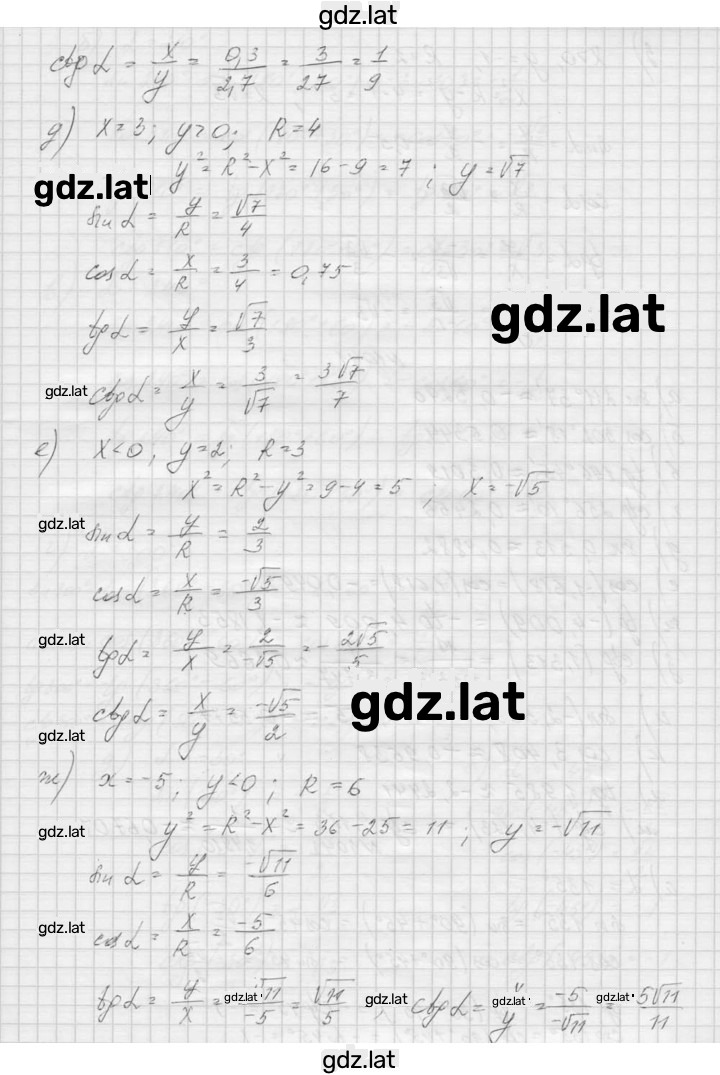 gdz.lat
ctg α = x/y = 0,3/2,7 = 3/27 = 1/9
д) x = 3; y > 0; R = 4
y² = R² - x² = 16 - 9 = 7 ; y = √7
gdz.lat
sin α = y/R = √7/4
cos α = x/R = 3/4 = 0,75
gdz.lat
tg α = y/x = √7/3
gdz.lat
ctg α = x/y = 3/√7 = 3√7/7
е) x < 0; y = 2; R = 3
x² = R² - y² = 9 - 4 = 5 ; x = -√5
gdz.lat
sin α = y/R = 2/3
cos α = x/R = -√5/3
gdz.lat
tg α = y/x = 2/-√5 = - 2√5/5
gdz.lat
ctg α = x/y = -√5/2
gdz.lat
ж) x = -5; y < 0; R = 6
y² = R² - x² = 36 - 25 = 11 ; y = -√11
gdz.lat
sin α = y/R = -√11/6
gdz.lat
cos α = x/R = -5/6
tg α = y/x = -√11/-5 = √11/5 ; ctg α = x/y = -5/-√11 = 5√11/11
gdz.lat gdz.lat gdz.lat gdz.lat
gdz.lat